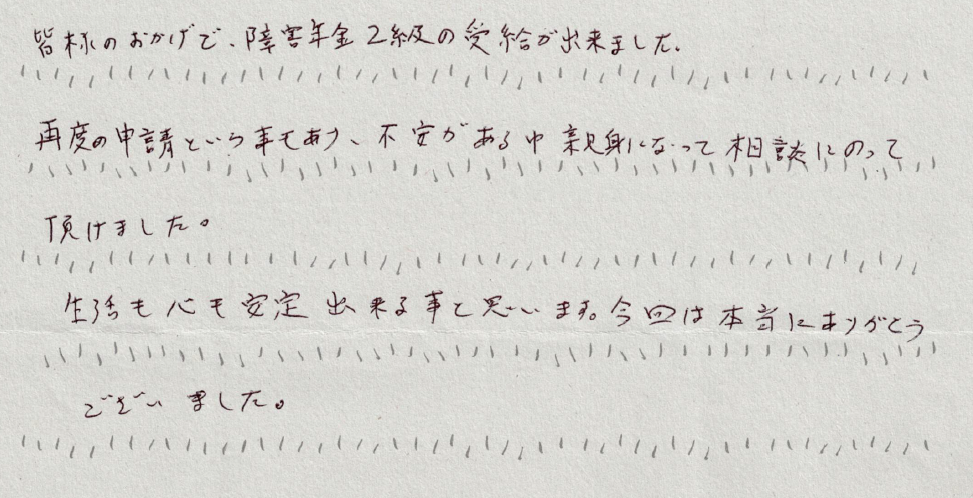 皆様のおかげで、障害年金2級の受給が出来ました。
再度の申請という事もあり、不安がある中親身になって相談にのって
頂けました。
生活も心も安定出来る事と思います。今回は本当にありがとう
ございました。